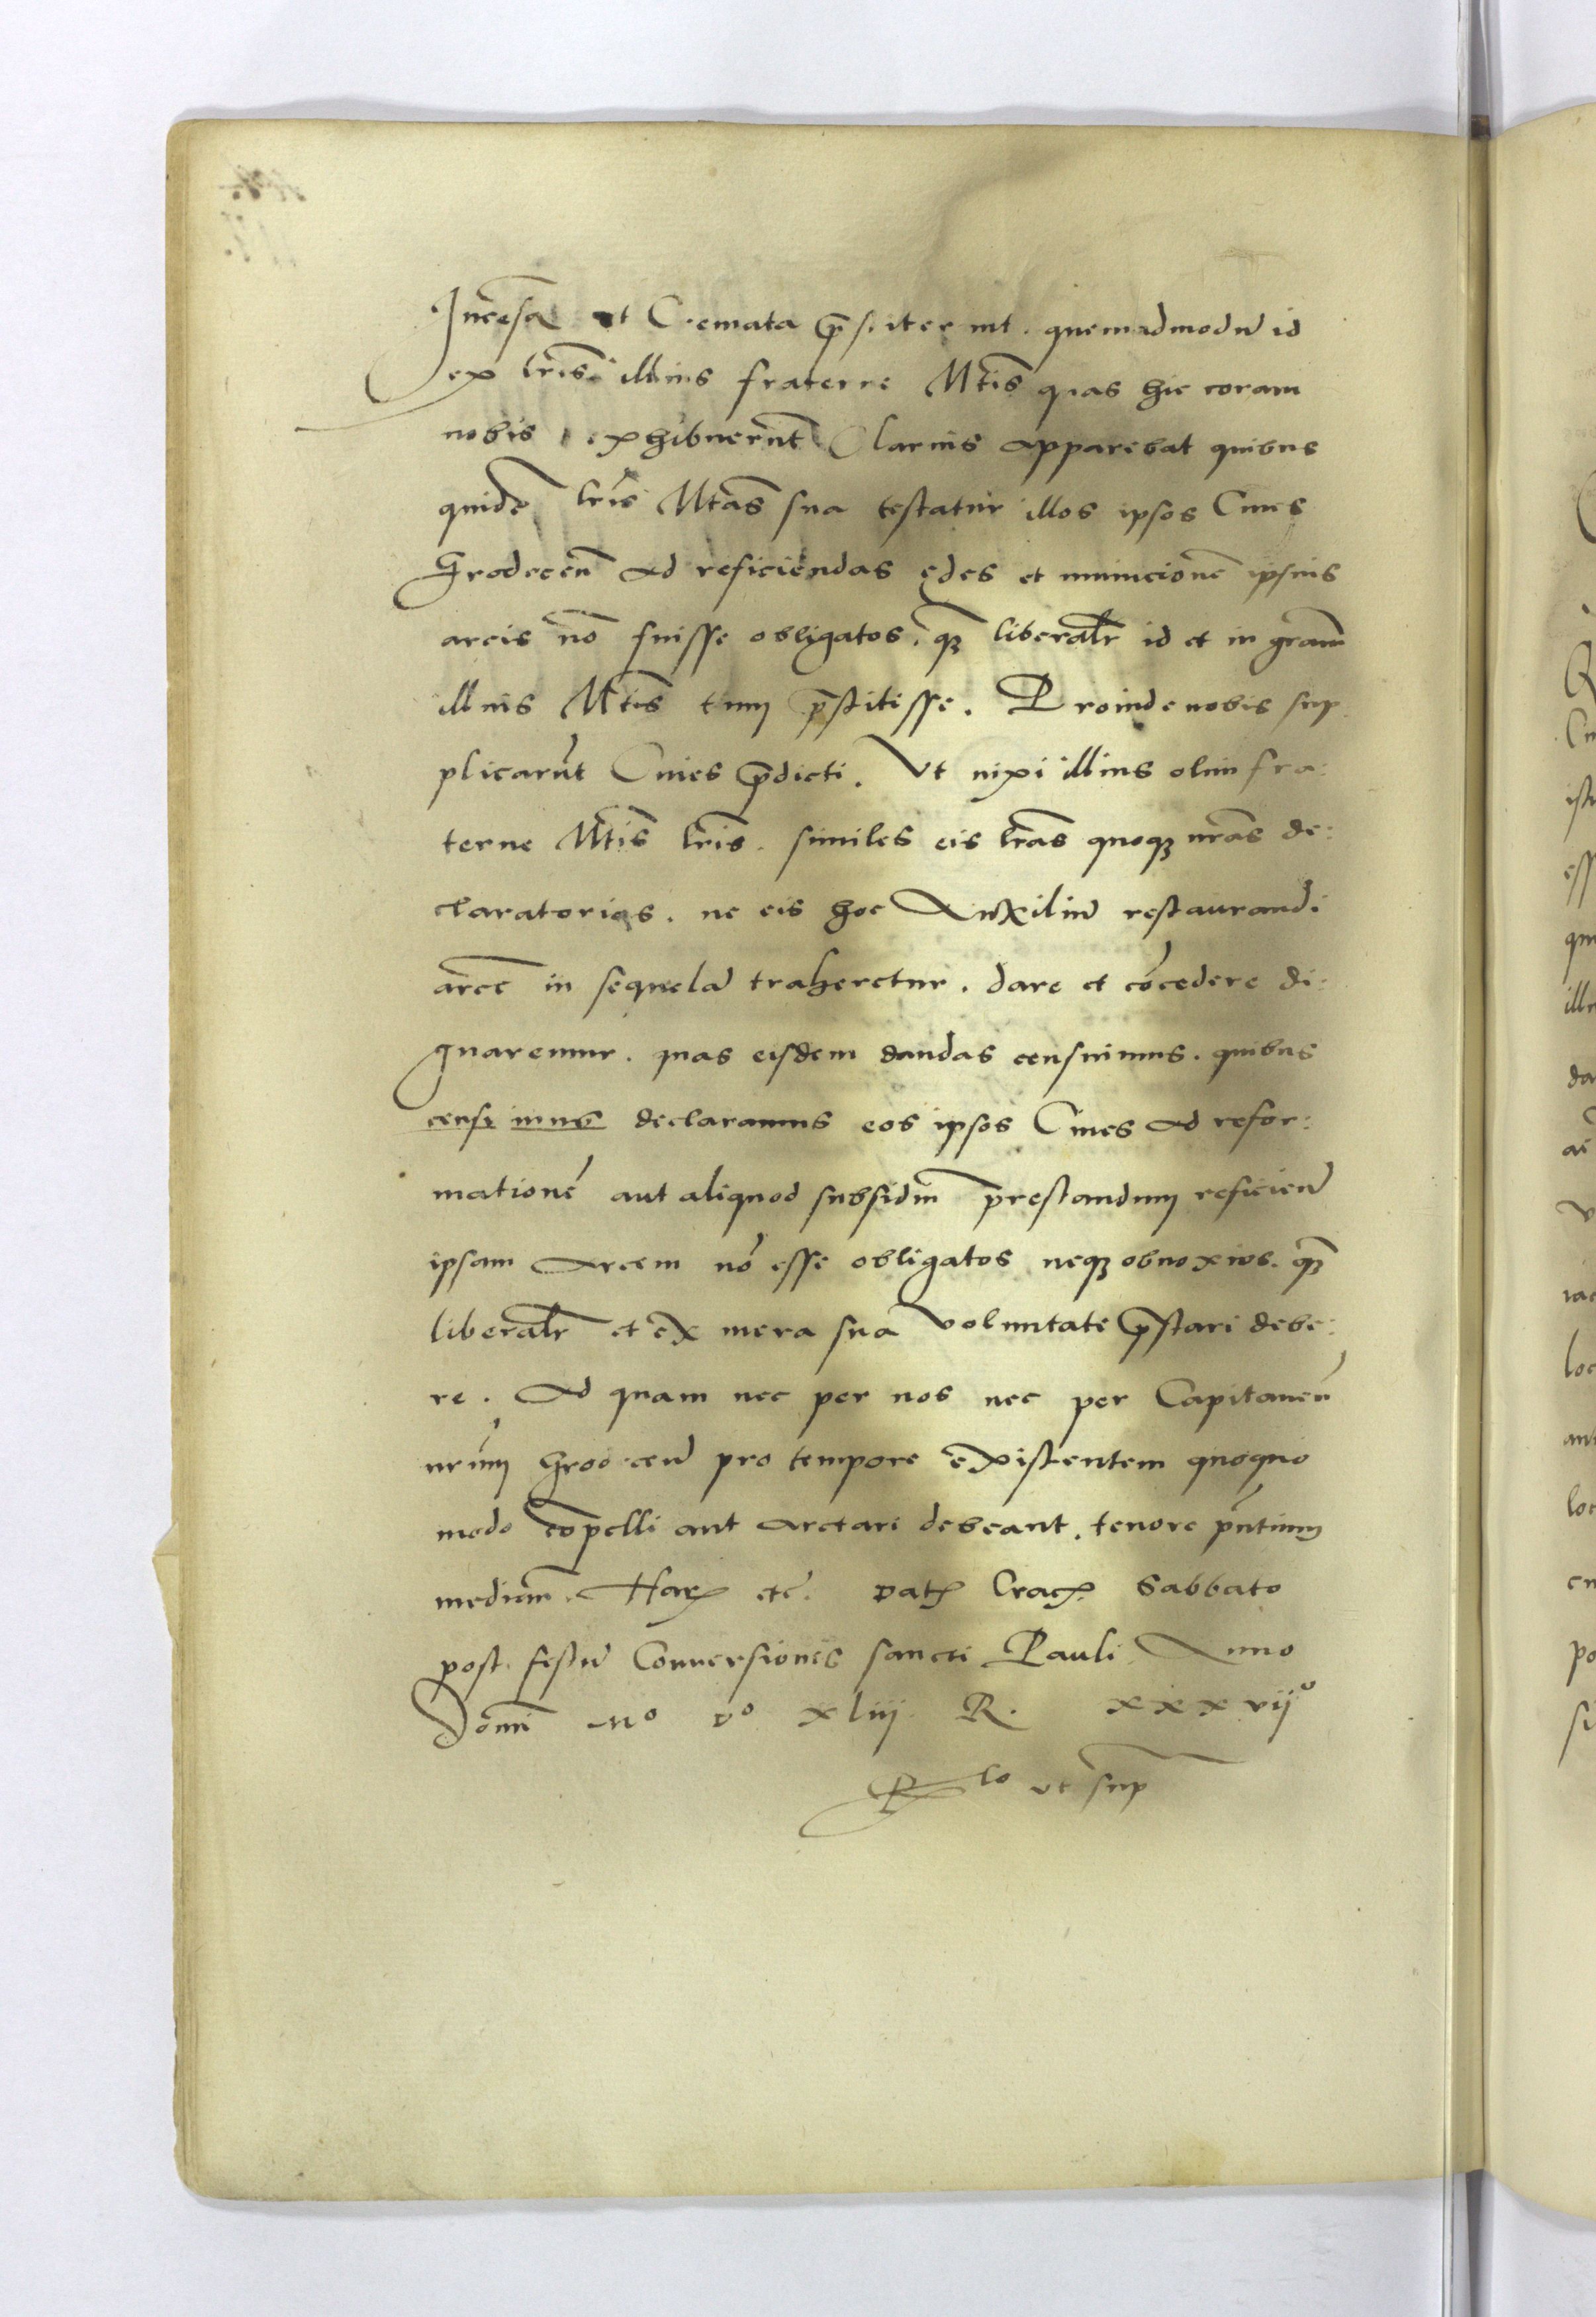 Incēsa et Cremata p̄stiterint. quemadmodū id
ex lr̄is illius fraterne Mt̄is quas hic coram
nobis exhibuerūt Clarius apparebat quibus
quidē lr̄is Mt̄as sua testatur illos ipsos Ciues
Grodeceñ ad reficiendas ędes et municionē ipsius
arcis nō fuisse obligatos. qȝ liberalr̄ id et in grām
illius Mt̄is tum p̄stitisse. Proinde nobis sup
plicarūt Ciues p̄dicti. Vt nixi illius olim fra:
terne Mt̄is lr̄is. similes eis lr̄as quoqȝ nr̄as de:
claratorias. ne eis hoc Auxiliū restaurandi
arcē in sequelā traheretur. dare et cōcedere di:
gnaremur. quas eisdem dandas censuimus. quibus
censuimus declaramus eos ipsos Ciues ad refor:
mationē aut aliquod subsidiū prestandum reficień
ipsam Arcem nō esse obligatos neqȝ obnoxios. qȝ
liberalr̄ et ex mera sua voluntate p̄stari debe:
re. Ad quam nec per nos nec per Capitaneū
nr̄um Grodeceñ pro tempore existentem quoquo
modo cōpelli aut arctari debeant. tenore pn̄tium
mediañ. Harꝝ etc̄. Datꝝ Cracꝝ. Sabbato
post festū Conuersionis sancti Pauli Anno
Domī Mº vº xliij R. xxxvijº
Rlo vt sup̄